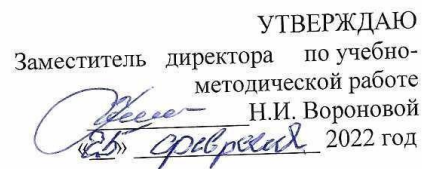 УТВЕРЖДАЮ
Заместитель директора по учебно-
методической работе
Н.И. Вороновой
«25» февраля 2022 год